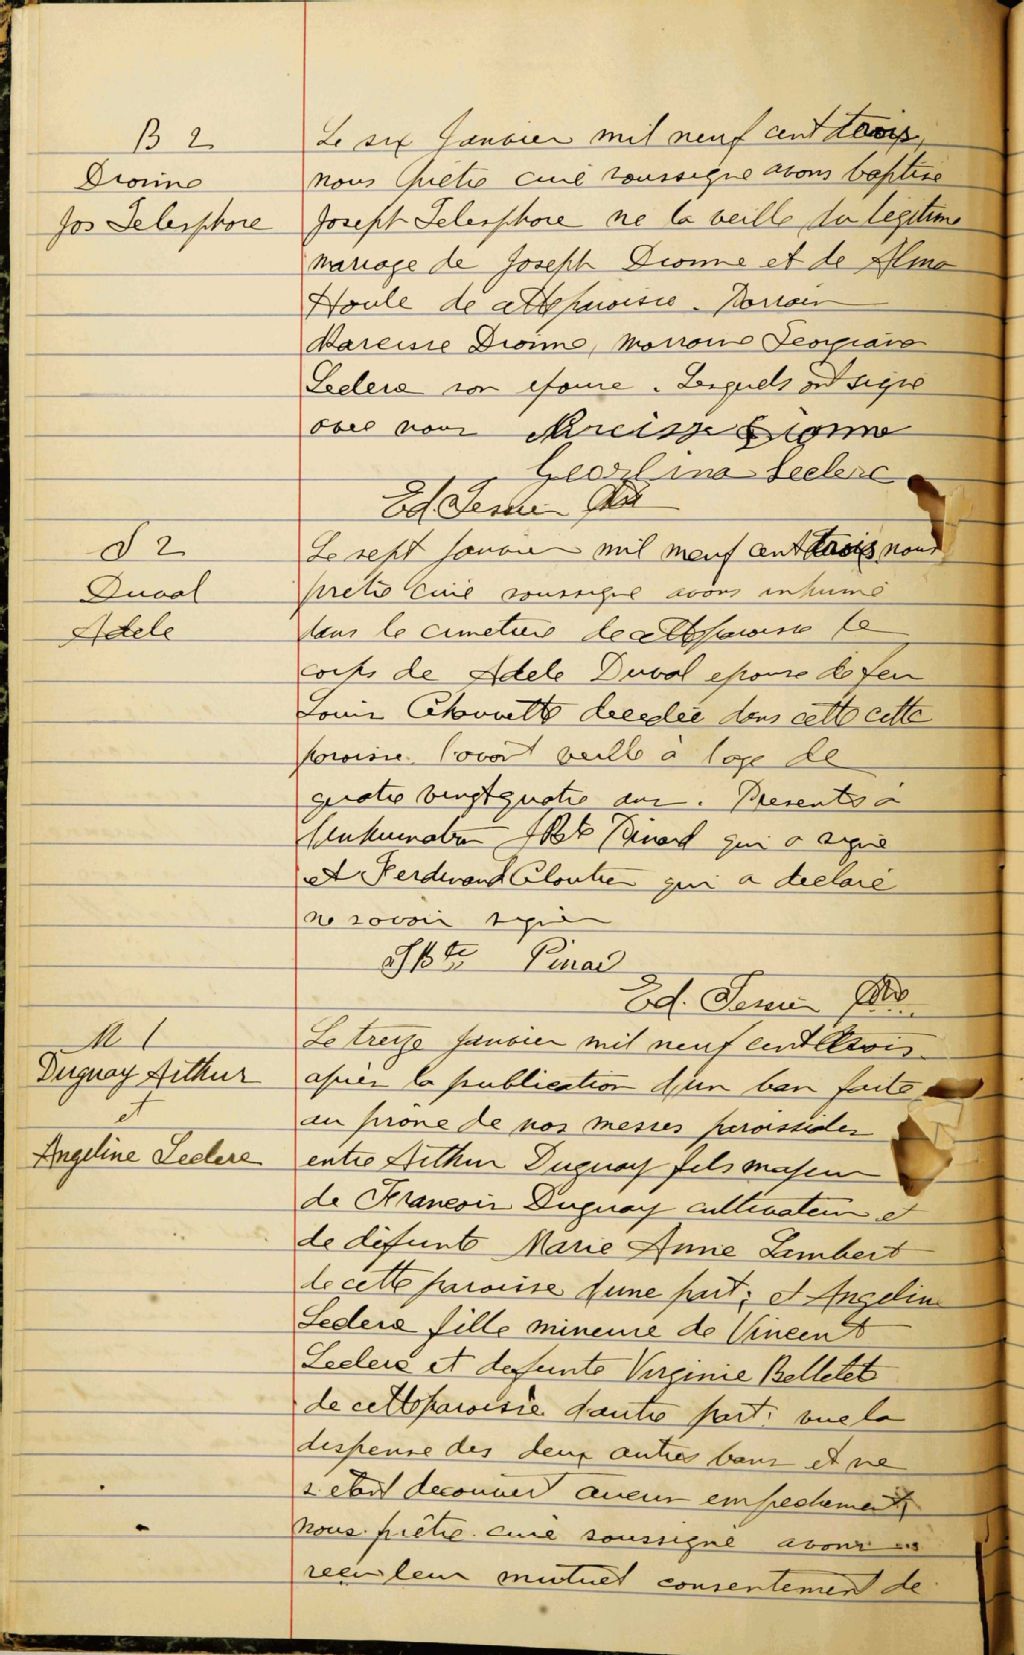 B 2
Dionne
Jos Telesphore
Le six Janvier mil neuf cent trois,
nous prêtre curé soussigné avons baptisé
Joseph Telesphore né la veille du légitime
mariage de Joseph Dionne et de Alma
Houle de cette paroisse. Parrain
Narcisse Dionne, marraine Georgiana
Leclerc son epouse. Lesquels ont signé
avec nous Narcisse Dionne
Georgina Leclerc
Ed. Tessier Ptre
S 2
Duval
Adele
Le sept Janvier mil neuf cent trois nous
prêtre curé soussigné avons inhumé
dans le cimetiere de cette paroisse le
corps de Adele Duval epouse de feu
Louis Chouvette decedée dans cette cette
paroisse l'avant veille à l'age de
quatre vingt quatre ans. Presents à
l'inhumation JBte Pinard qui a signé
et Ferdinand Cloutier qui a declaré
ne savoir signer
JBte Pinard
Ed. Tessier Ptre
M 1
Duguay Arthur
et
Angeline Leclerc
Le treize Janvier mil neuf cent trois
après la publication d'un ban faite
au prône de nos messes paroissiales
entre Arthur Duguay fils majeur
de François Duguay cultivateur et
de défunte Marie Anne Lambert
de cette paroisse d'une part; et Angeline
Leclerc fille mineure de Vincent
Leclerc et defunte Virginie Belletete
de cette paroisse d'autre part: vue la
dispense des deux autres bans et ne
s'etant decouvert aucun empechement,
nous prêtre curé soussigné avons
reçu leur mutuel consentement de